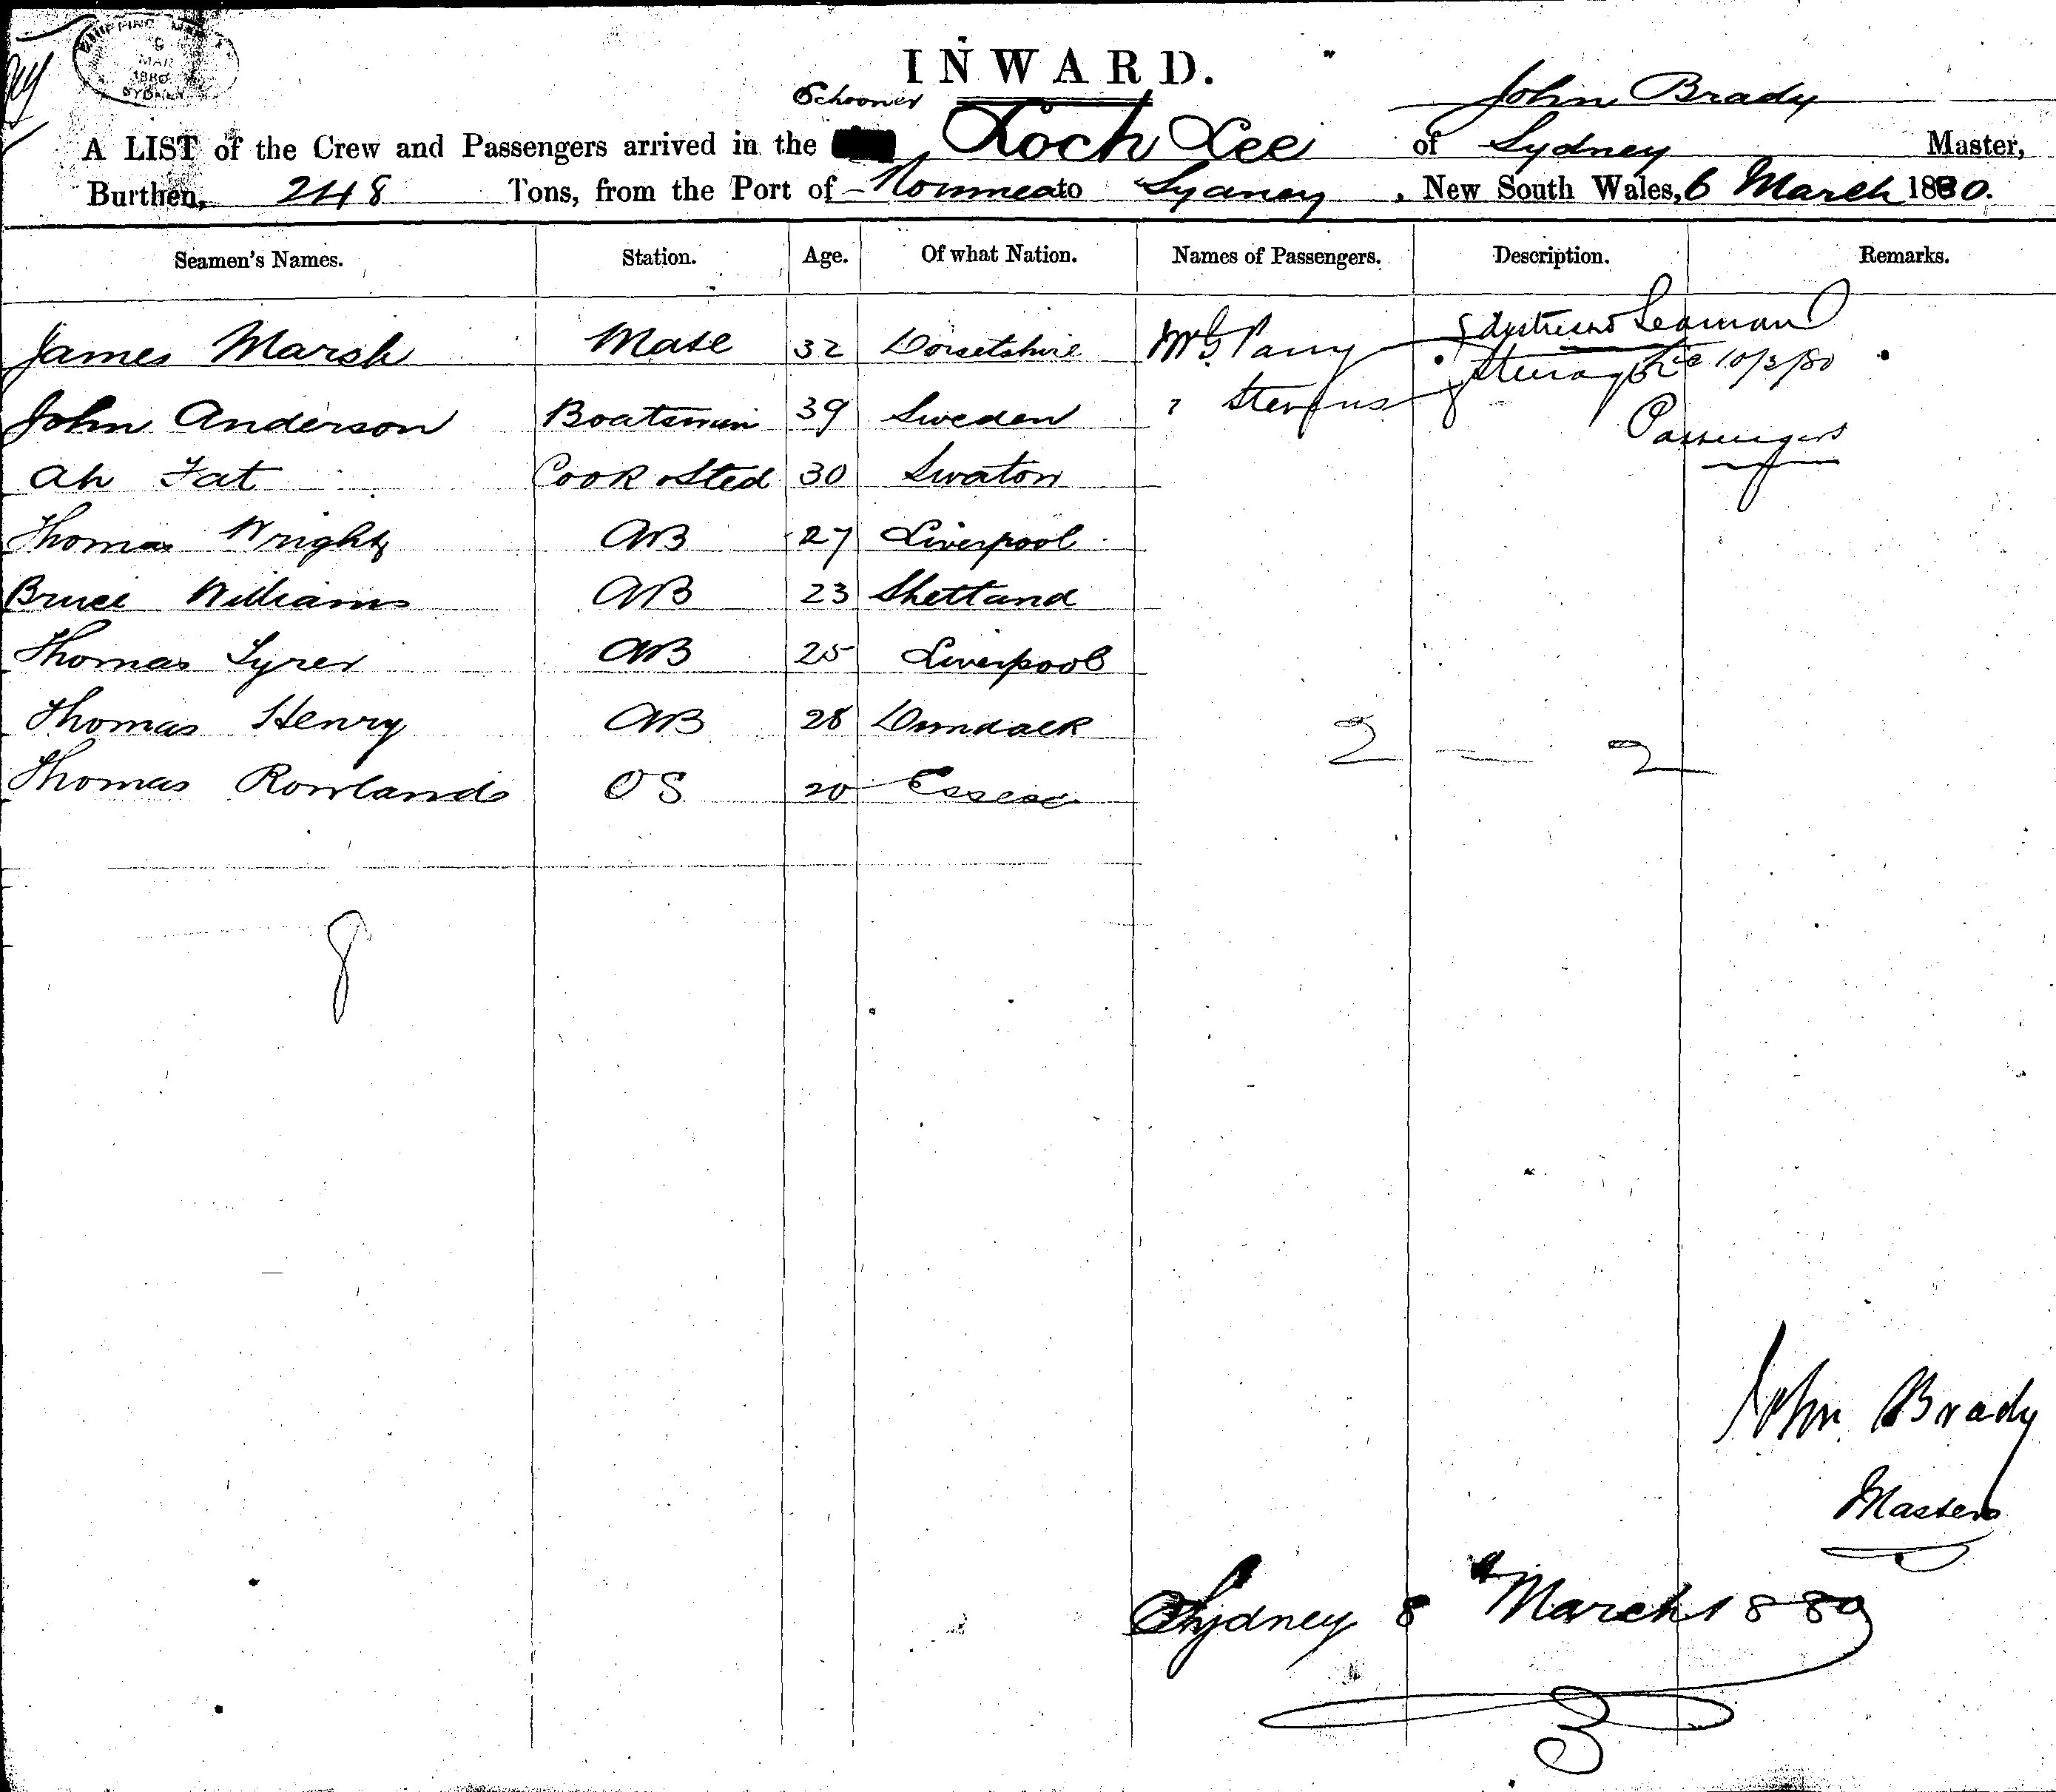 SHIPPING MASTER
9
MAR
1880
SYDNEY
INWARD.
Schooner
John Brady
A LIST of the Crew and Passengers arrived in the Loch Lee of Sydney Master,
Burthen, 248 Tons, from the Port of Noumea to Sydney, New South Wales, 6 March 1880.
Seamen's Names. Station. Age. Of what Nation. Names of Passengers. Description. Remarks.
James Marsh Mate 32 Dorsetshire Mr G Parry Seaman
10/3/80
John Anderson Boatsman 39 Sweden " Stevens Passengers
Ah Fat Cook & Sted 30 Swaton
Thomas Wright AB 27 Liverpool
Bruce Williams AB 23 Shetland
Thomas Syrer AB 25 Liverpool
Thomas Henry AB 28 Dundalk
2 — 2
Thomas Rowlands OS 20 Essex
8
John Brady
Master
Sydney 8th March 1880